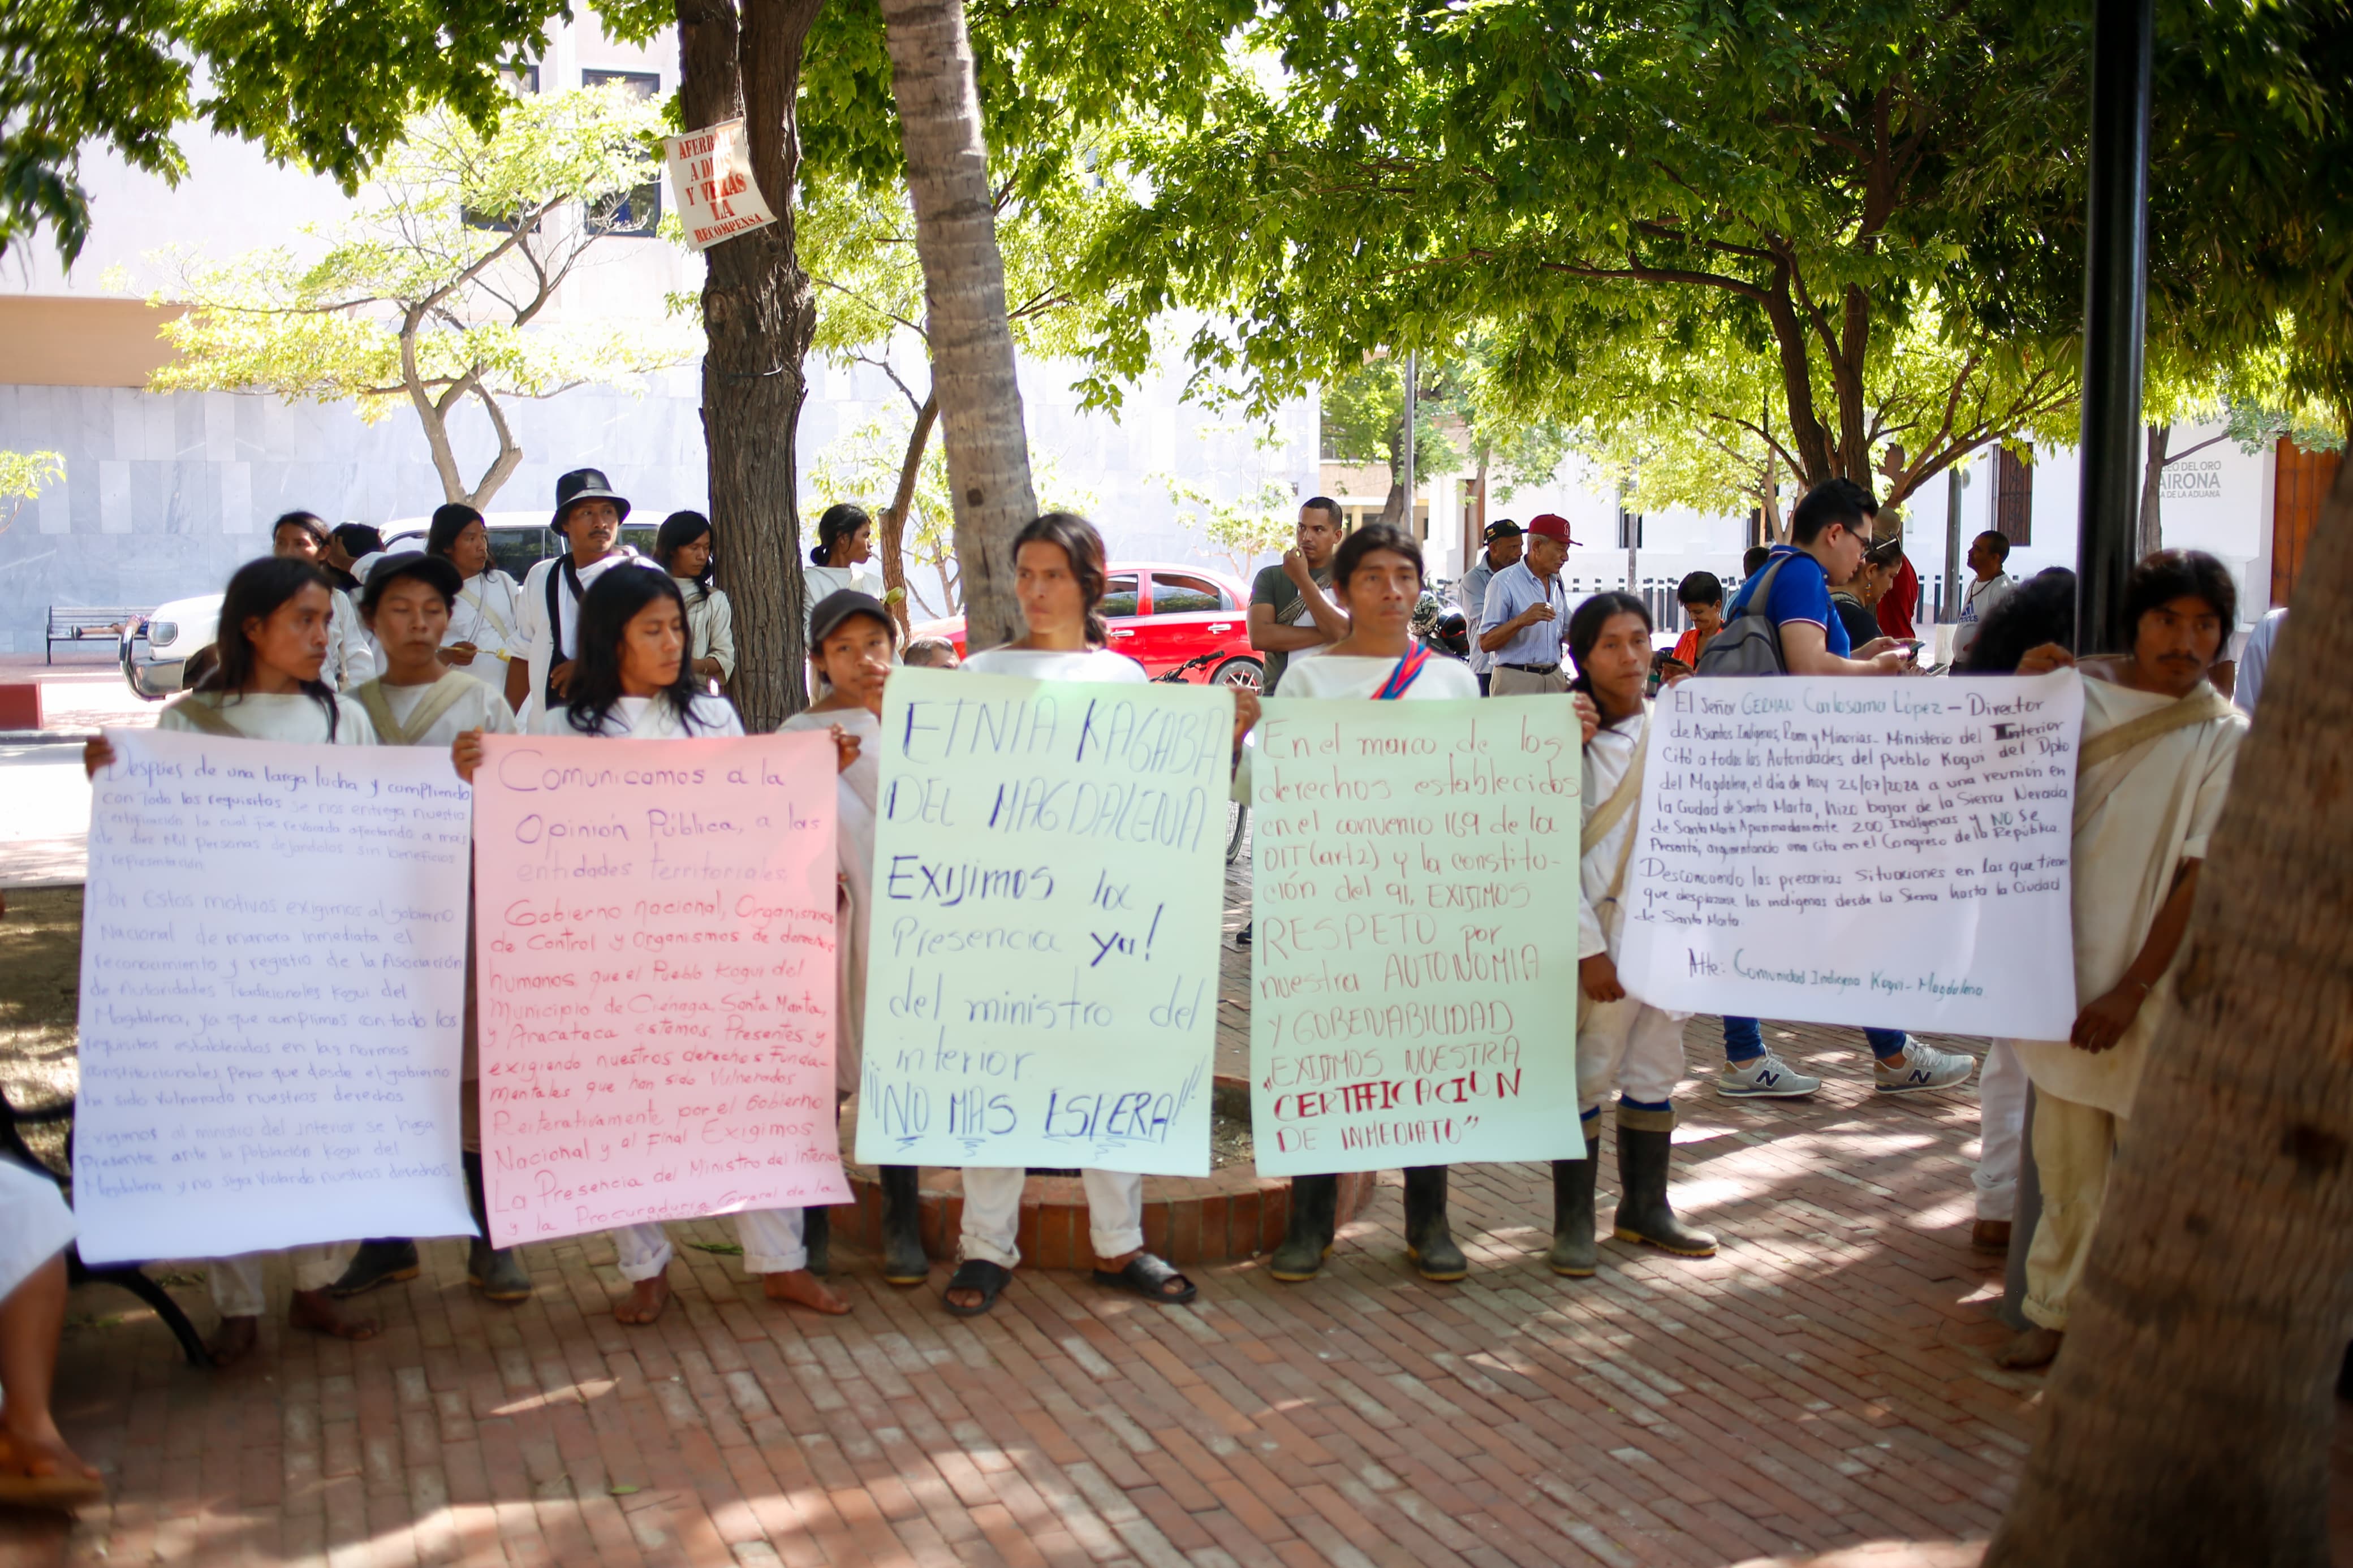 AFERB
A DIOS
Y VERÁS
LA
RECOMPENSA
EO DEL ORO
AIRONA
A DE LA ADUANA
Despues de una larga lucha y cumpliendo
con todo los requisitos se nos entrega nuestra
Certificación la cual fue revocada afectando a más
de diez mil personas dejandolos sin beneficios
y representación
Por estos motivos exigimos al gobierno
Nacional de manera inmediata el
reconocimiento y registro de la Asociación
de Autoridades Tradicionales Kogui del
Magdalena, ya que cumplimos con todo los
requisitos establecidos en las normas
constitucionales pero que desde el gobierno
ha sido vulnerado nuestros derechos
Exigimos al ministro del interior se haga
Presente ante la población Kogui del
Magdalena y no siga violando nuestros derechos
Comunicamos a la
Opinión Pública, a las
entidades territoriales
Gobierno nacional, Organismos
de Control y Organismos de derechos
humanos que el Pueblo Kogui del
Municipio de Ciénaga, Santa Marta,
y Aracataca estamos Presentes y
exigiendo nuestros derechos Funda-
mentales que han sido Vulnerados
Reiterativamente por el Gobierno
Nacional y al Final Exigimos
La Presencia del Ministro del Interior
y la Procuraduria General de la
ETNIA KAGABA
DEL MAGDALENA
EXIJIMOS la
Presencia ya!
del ministro del
interior.
¡¡¡NO MAS ESPERA!!!
En el marco de los
derechos establecidos
en el convenio 169 de la
OIT (art 2) y la constitu-
ción del 91, EXIJIMOS
RESPETO por
nuestra AUTONOMIA
Y GOBERNABILIDAD
"EXIJIMOS NUESTRA
CERTIFICACION
DE INMEDIATO"
El Señor GERMAN Carlosama López - Director
de Asuntos Indígenas, Rom y Minorias - Ministerio del Interior
Citó a todas las Autoridades del Pueblo Kogui del Dpto
del Magdalena, el día de hoy 26/07/2024 a una reunión en
la Ciudad de Santa Marta, hizo bajar de la Sierra Nevada
de Santa Marta Aproximadamente 200 Indígenas y NO se
Presentó, argumentando una cita en el Congreso de la República.
Desconocendo las precarias Situaciones en las que tienen
que desplazarse los indígenas desde la Sierra hasta la Ciudad
de Santa Marta.
Atte: Comunidad Indigena Kogui - Magdalena
N
N